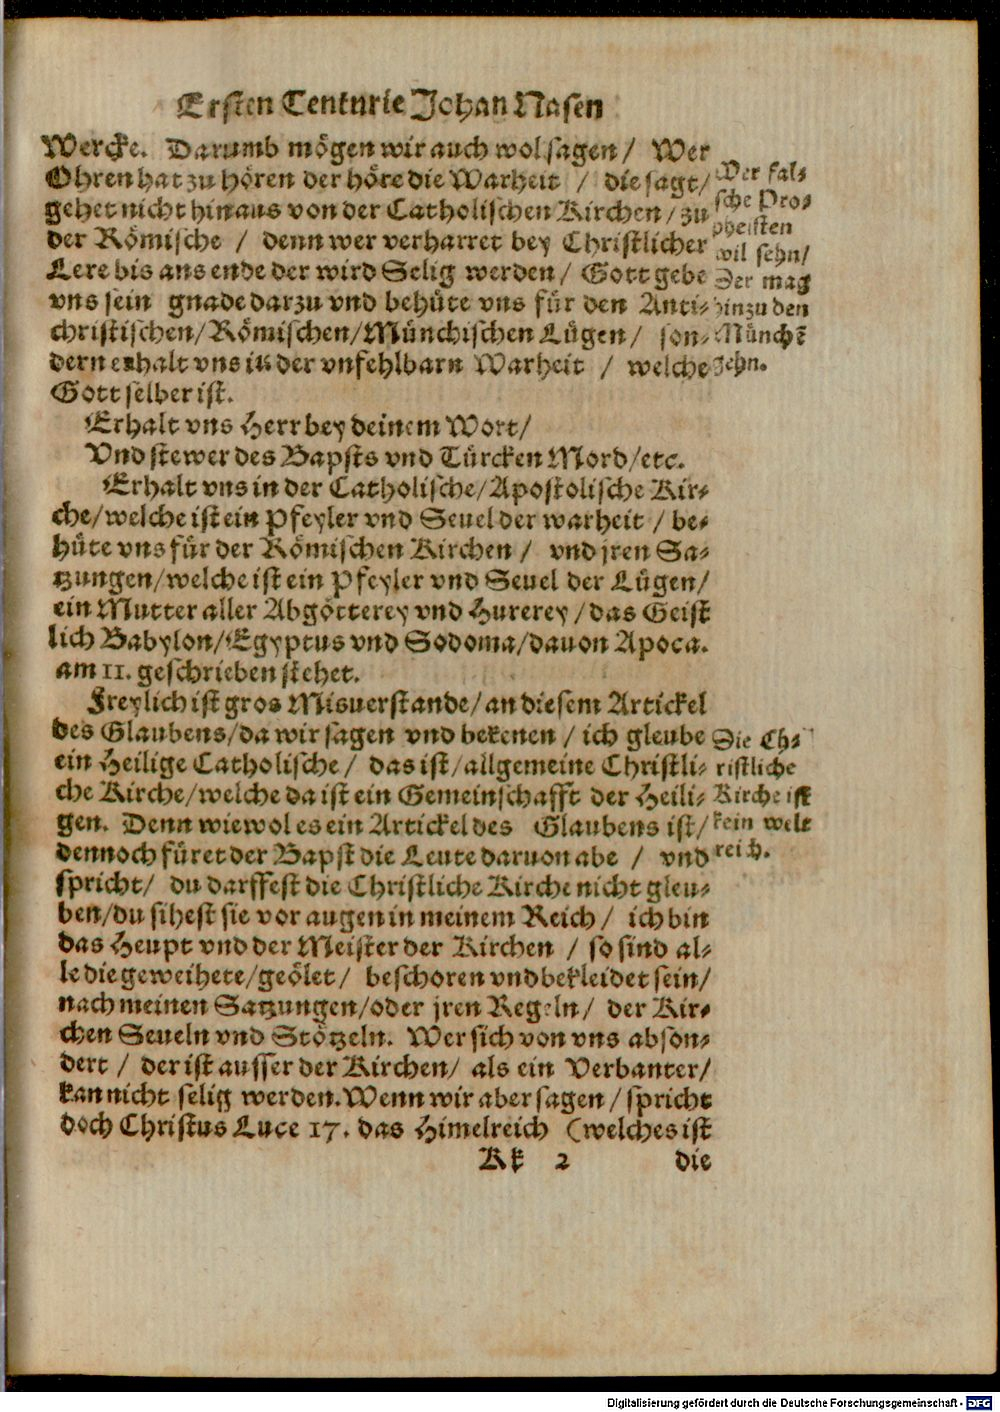 Ersten Centurie Johan Nasen
Wercke. Darumb mögen wir auch wol sagen / Wer
Ohren hat zu hören der höre die Warheit / die sagt/
gehet nicht hinaus von der Catholischen Kirchen / zu
der Römische / denn wer verharret bey Christlicher
Lere bis ans ende der wird Selig werden / Gott gebe
vns sein gnade darzu vnd behüte vns für den Anti⸗
christischen/Römischen/Münchischen Lügen / son⸗
dern erhalt vns in der vnfehlbarn Warheit / welche
Gott selber ist.
Wer fal⸗
sche Pro⸗
pheisten
wil sehn/
Der mag
hinzu den
Münchē
gehn.
Erhalt vns Herr bey deinem Wort/
Vnd stewer des Bapsts vnd Türcken Mord/etc.
Erhalt vns in der Catholische/Apostolische Kir⸗
che/welche ist ein Pfeyler vnd Seuel der warheit / be⸗
hüte vns für der Römischen Kirchen / vnd jren Sa⸗
tzungen/welche ist ein Pfeyler vnd Seuel der Lügen/
ein Mutter aller Abgötterey vnd Hurerey / das Geist
lich Babylon/Egyptus vnd Sodoma/dauon Apoca.
am 11. geschrieben stehet.
Freylich ist gros Misuerstande/an diesem Artickel
des Glaubens/da wir sagen vnd bekenen / ich gleube
ein Heilige Catholische / das ist/allgemeine Christli⸗
che Kirche/welche da ist ein Gemeinschafft der Heili⸗
gen. Denn wiewol es ein Artickel des Glaubens ist/
dennoch füret der Bapst die Leute daruon abe / vnd
spricht/ du darffest die Christliche Kirche nicht gleu⸗
ben/du sihest sie vor augen in meinem Reich / ich bin
das Heupt vnd der Meister der Kirchen / so sind al⸗
le die geweihete/geölet/ beschoren vnd bekleidet sein/
nach meinen Satzungen/oder jren Regeln / der Kir⸗
chen Seueln vnd Stötzeln. Wer sich von vns abson⸗
dert / der ist ausser der Kirchen/ als ein Verbanter/
kan nicht selig werden. Wenn wir aber sagen / spricht
doch Christus Luce 17. das Himelreich (welches ist
Die Ch⸗
ristliche
Kirche ist
kein welt
reich.
Kk 2 die
Digitalisierung gefördert durch die Deutsche Forschungsgemeinschaft - DFG